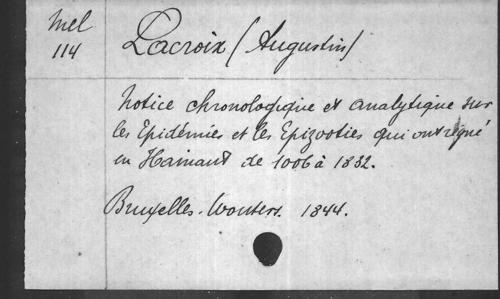 Mel
114
Lacroix (Augustin)
Notice chronologique et analytique sur
les Epidémies et les Epizooties qui ont regné
en Hainaut de 1006 à 1832.
Bruxelles. Wouters. 1844.